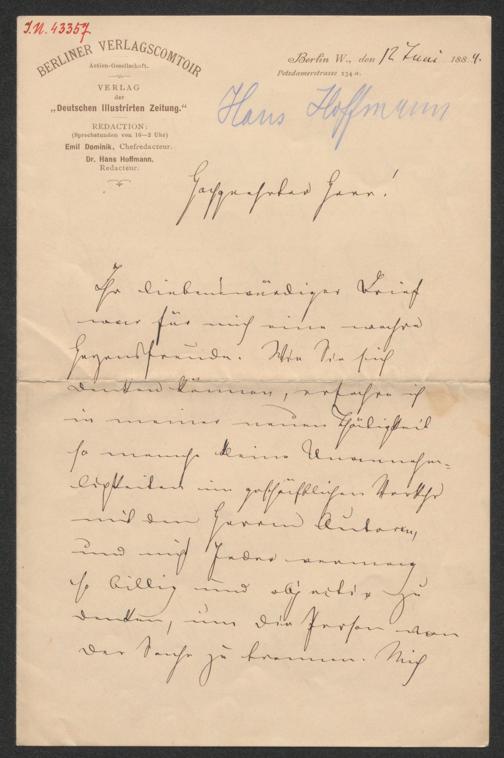 J.N. 43357
BERLINER VERLAGSCOMTOIR
Actien-Gesellschaft.
VERLAG
der
„Deutschen Illustrirten Zeitung."
REDACTION:
(Sprechstunden von 10—2 Uhr)
Emil Dominik, Chefredacteur.
Dr. Hans Hoffmann,
Redacteur.
Berlin W., den 12 Juni 1884.
Potsdamerstrasse 134a.
Hans Hoffmann
Hochgeehrter Herr!
Ihr liebenswürdiger Brief
war für mich eine wahre
Herzensfreude. Wie Sie sich
denken können, erfahre ich
in meiner neuen Thätigkeit
so manche kleine Unannehm=
lichkeiten im geschäftlichen Verkehr
mit den Herren Autoren,
und nicht Jeder vermag
so billig und objectiv zu
denken, um die Person von
der Sache zu trennen. Mich